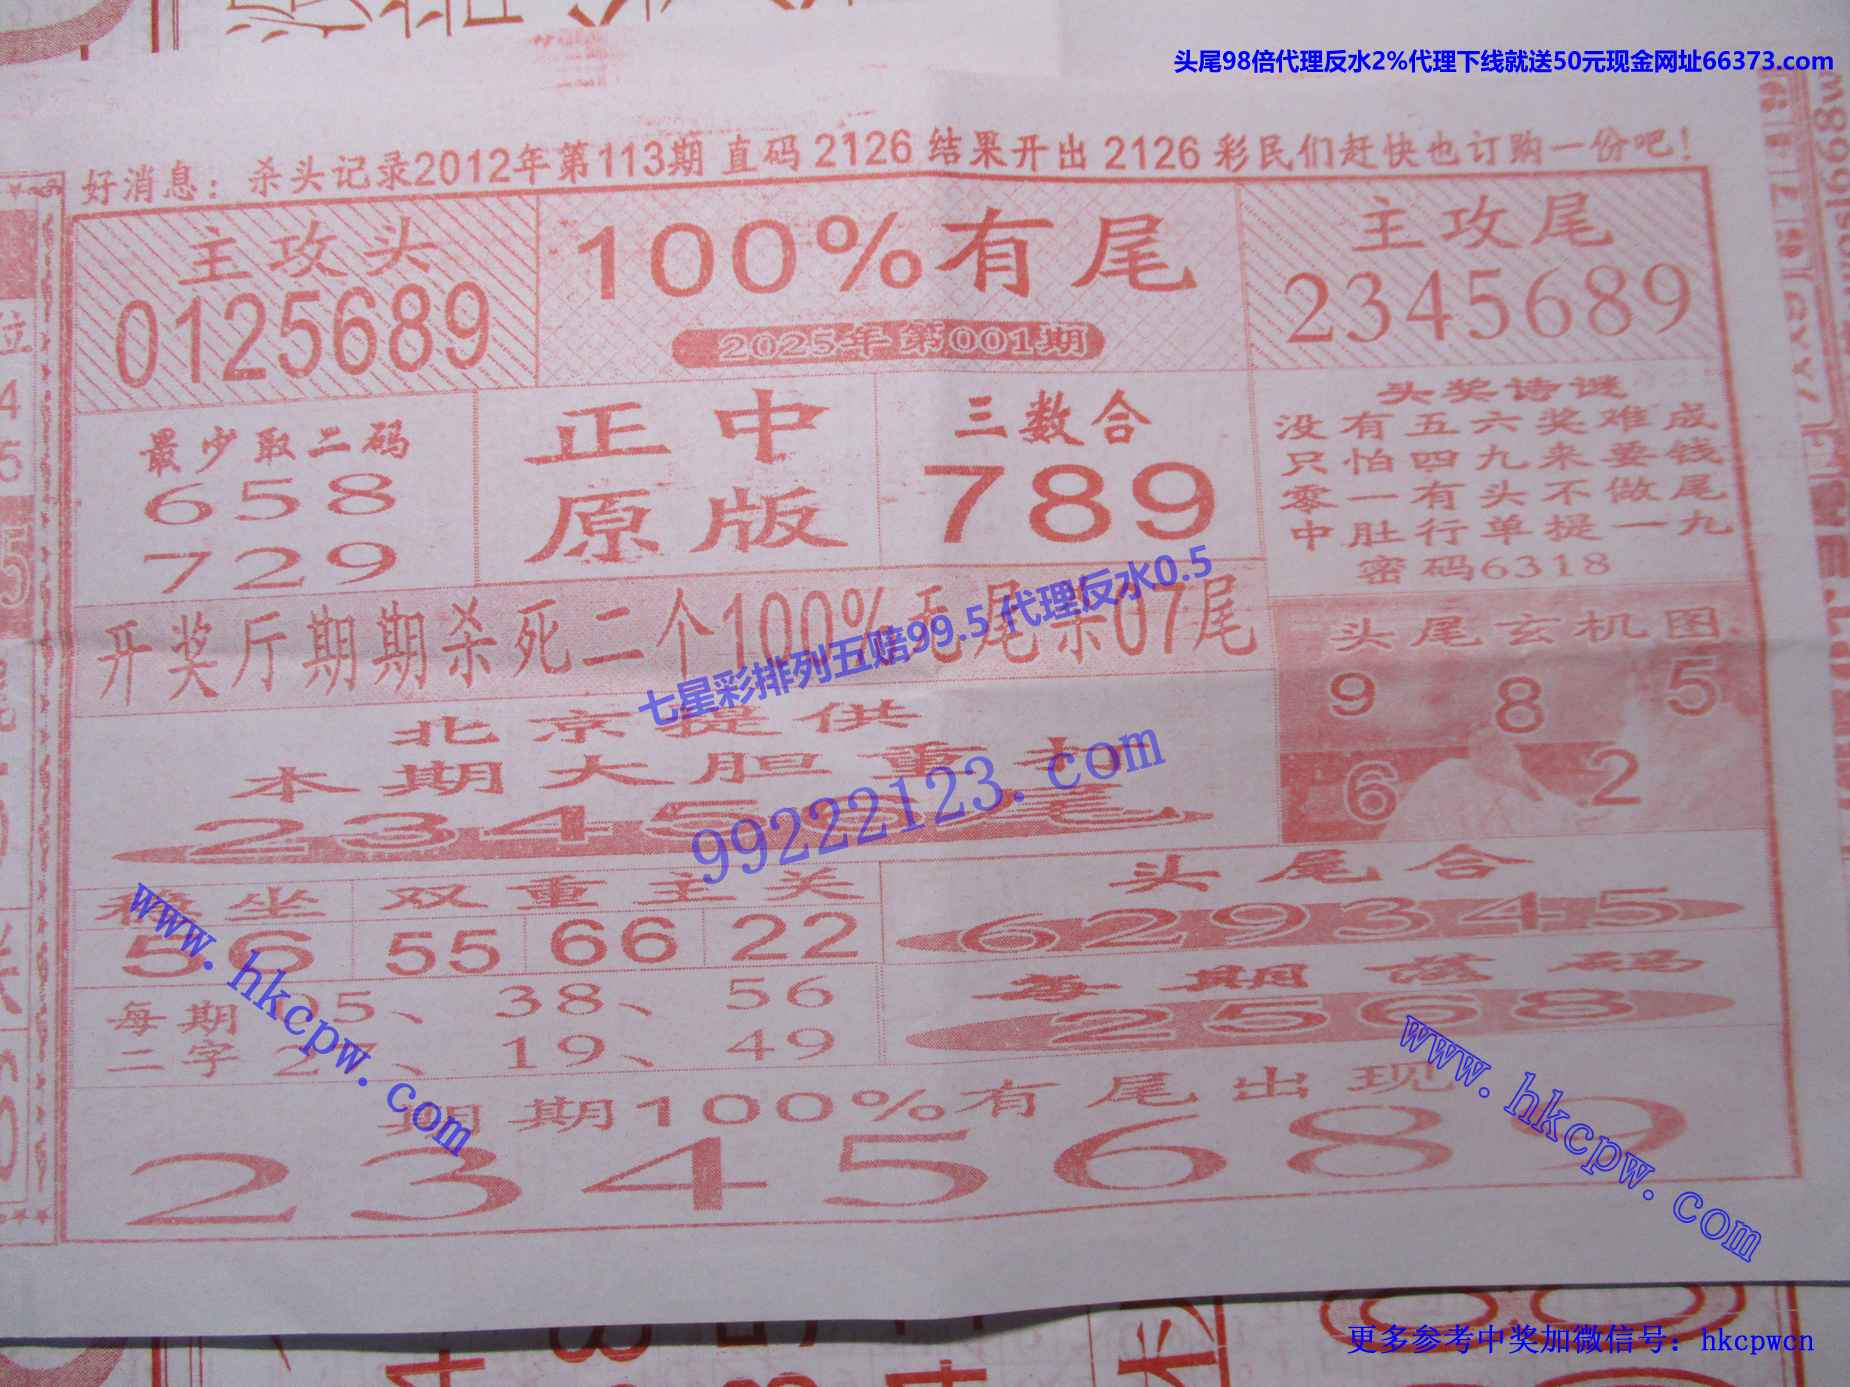 头尾98倍代理反水2%代理下线就送50元现金网址66373.com
好消息：杀头记录2012年第113期 直码 2126 结果开出 2126 彩民们赶快也订购一份吧！
主攻头
0125689
100%有尾
2025年第001期
主攻尾
2345689
最少取二码
658
729
正中
原版
三数合
789
头奖诗谜
没有五六奖难成
只怕四九来要钱
零一有头不做尾
中肚行单提一九
密码6318
开奖厅期期杀死二个100%无尾杀07尾
七星彩排列五赔99.5 代理反水0.5
头尾玄机图
9 8 5
6 2
北京提供
本期大胆重扑
99222123.com
稳坐
56
双重主关
55 66 22
头尾合
629345
每期
二字
5、38、56
27、19、49
每期
码
2568
www.hkcpw.com
www.hkcpw.com
期期100%有尾出现
2345689
更多参考中奖加微信号：hkcpwcn